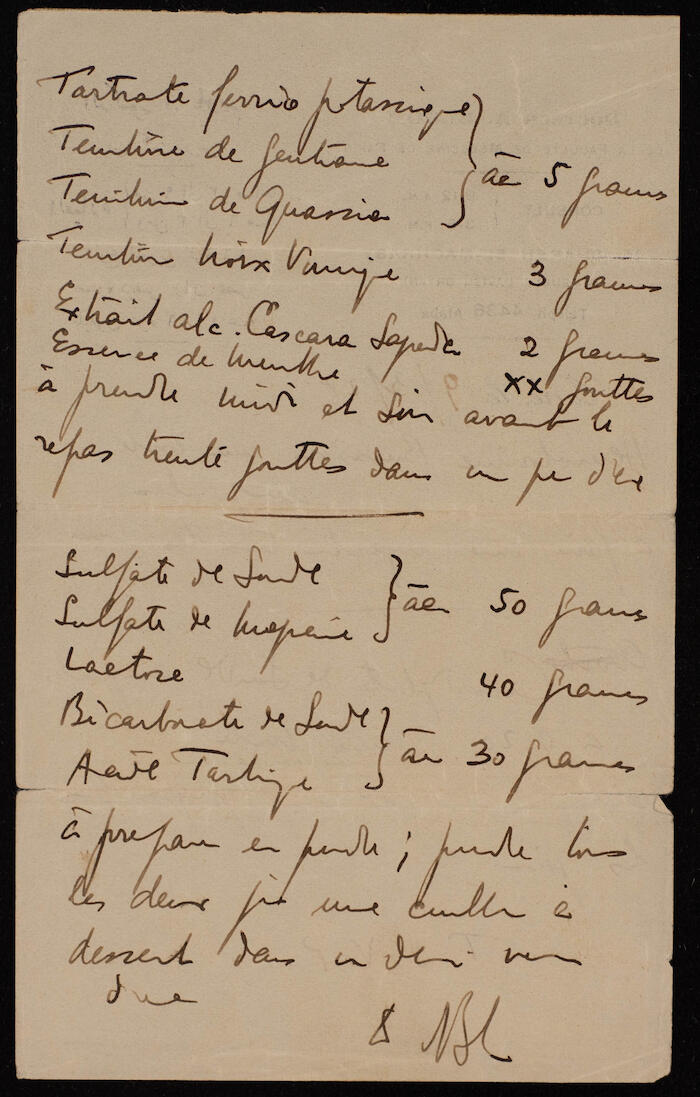 Tartrate ferrico potassique
Teinture de gentiane } āā 5 grams
Teinture de Quassia
Teinture Noix Vomique 3 grames
Extrait alc. Cascara Sagrada 2 grames
Essence de menthe XX gouttes
à prendre midi et soir avant le
repas trente gouttes dans un peu d'eau
Sulfate de Soude
Sulfate de magnesie } āā 50 grams
Lactose 40 grames
Bicarbonate de Soude
Acide Tartrique } āā 30 grames
à preparer en poudre ; prendre tous
les deux jrs une cuiller à
dessert dans un demi verre
d'eau